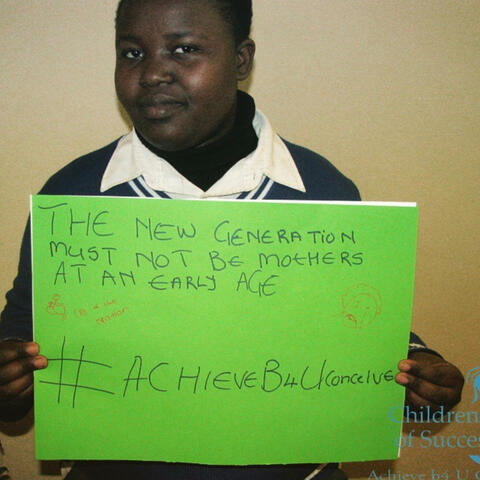 THE NEW GENERATION
MUST NOT BE MOTHERS
AT AN EARLY AGE
# ACHIEVEB4Uconceive
Children
of Succes
Achieve b4 U